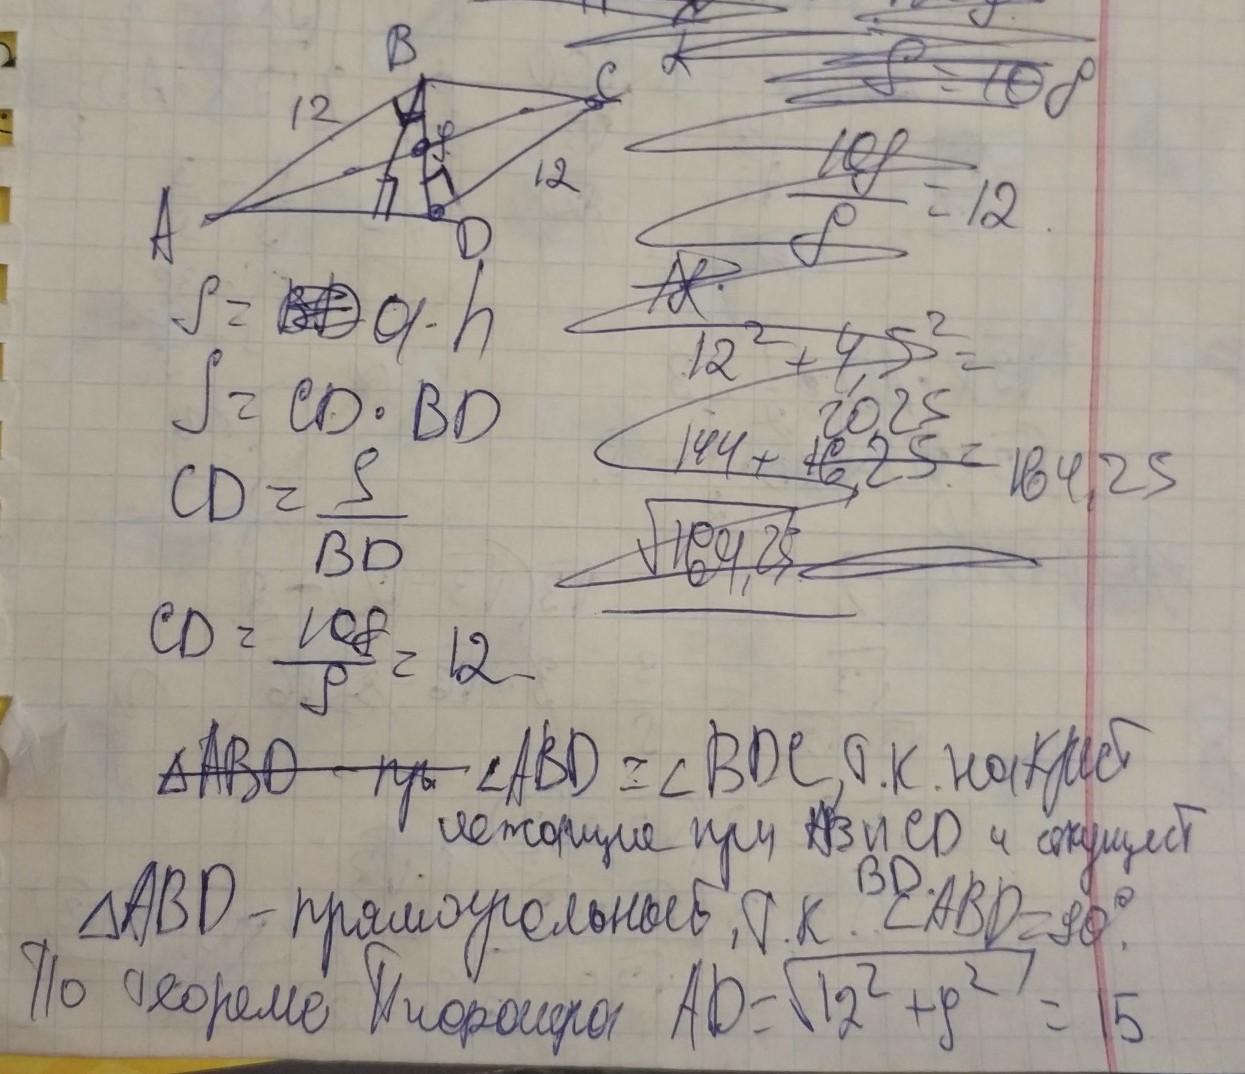 B
C
12
9
12
A
D
S = a · h
S = CD · BD
CD = S / BD
CD = 108 / 9 = 12
∠ABD = ∠BDC, т.к. накрест
лежащие при AB и CD и секущей
BD.
△ABD – прямоугольный, т.к. ∠ABD = 90°.
По теореме Пифагора AD = √12² + 9² = 15
S = 108
108 / 9 = 12
12² + 4,5² =
20,25
144 + = 164,25
√164,25